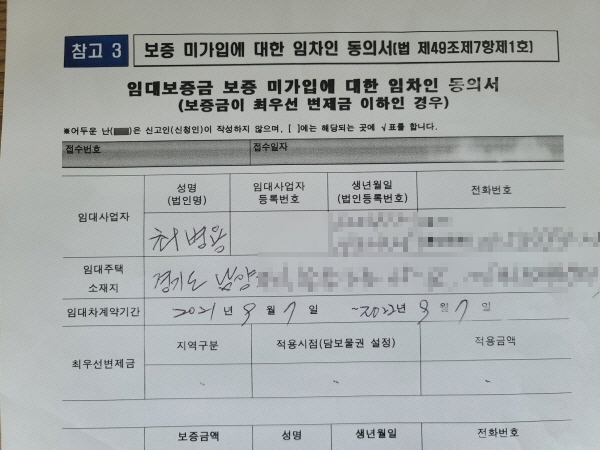 참고 3 보증 미가입에 대한 임차인 동의서(법 제49조제7항제1호)
임대보증금 보증 미가입에 대한 임차인 동의서
(보증금이 최우선 변제금 이하인 경우)
※어두운 난( )은 신고인(신청인)이 작성하지 않으며, [ ]에는 해당되는 곳에 √표를 합니다.
접수번호 접수일자
임대사업자 성명 (법인명) 임대사업자 등록번호 생년월일 (법인등록번호) 전화번호
최병용
임대주택 소재지 경기도
임대차계약기간 2021년 9월 7일 ~2022년 9월 7일
최우선변제금 지역구분 적용시점(담보물권 설정) 적용금액
보증금액 성명 생년월일 전화번호